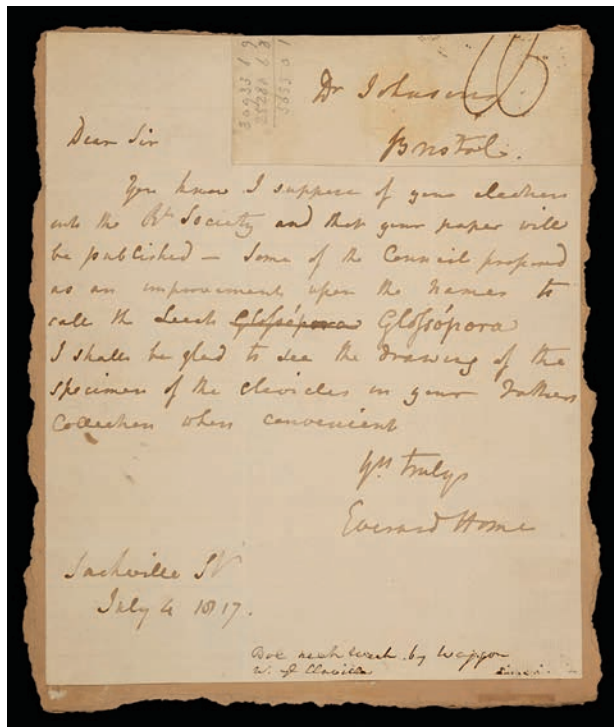 Dr Johnson
Bristol.
Dear Sir
You know I suppose of your election
into the Rl. Society and that your paper will
be published – Some of the Council proposed
as an improvement upon the names to
call the Leech Glossópora Glossópora
I shall be glad to see the drawing of the
specimen of the clavicles in your Fathers
Collection when convenient
Yrs truly
Everard Home
Sackville St
July 4 1817.
by Waggon
W.